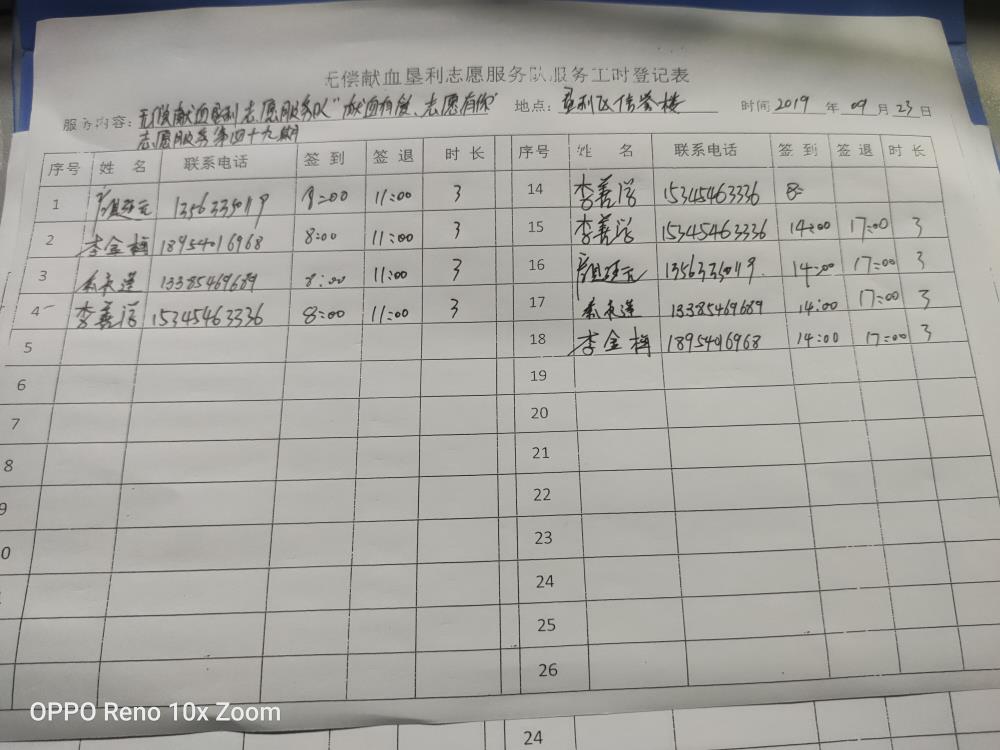 无偿献血垦利志愿服务队服务工时登记表
服务内容：无偿献血垦利志愿服务队"献血有爱、志愿有你" 地点：垦利区信誉楼 时间 2019 年 09 月 23 日
志愿服务第四十九期
序号 姓 名 联系电话 签 到 签 退 时 长 序号 姓 名 联系电话 签 到 签 退 时 长
1 13563350119 8:00 11:00 3 14 李善学 15345463336 8:
2 李金梅 18954016968 8:00 11:00 3 15 李善学 15345463336 14:00 17:00 3
3 13385469689 8:00 11:00 3 16 14:00 17:00 3
4 李善学 15345463336 8:00 11:00 3 17 13385469689 14:00 17:00 3
5 18 李金梅 18954016968 14:00 17:00 3
6 19
7 20
8 21
9 22
0 23
24
25
26
OPPO Reno 10x Zoom
24